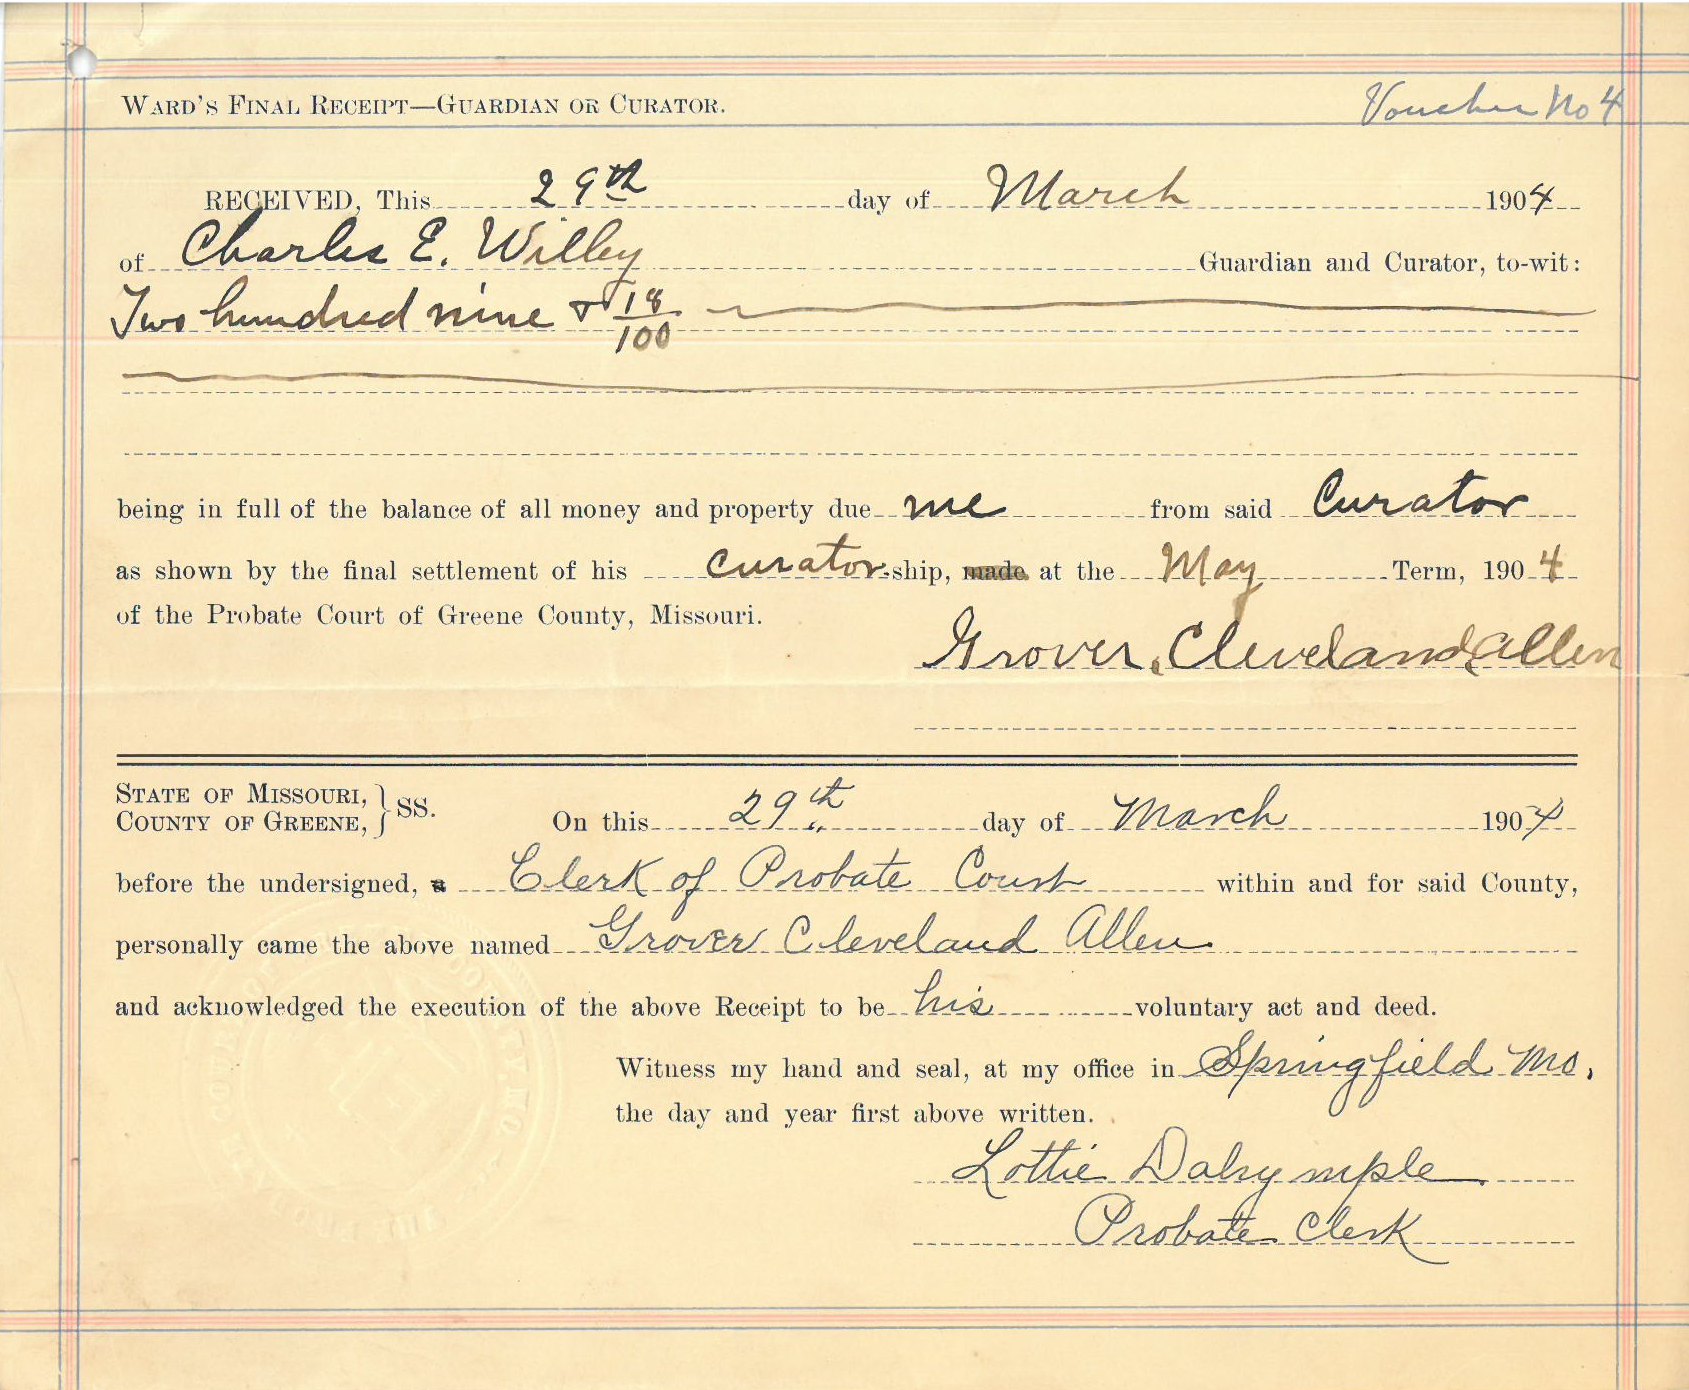 WARD'S FINAL RECEIPT—GUARDIAN OR CURATOR. Voucher No 4
RECEIVED, This 29th day of March 1904
of Charles E. Willey Guardian and Curator, to-wit:
Two hundred nine & 18/100
being in full of the balance of all money and property due me from said Curator
as shown by the final settlement of his curator-ship, made at the May Term, 1904
of the Probate Court of Greene County, Missouri.
Grover Cleveland Allen
STATE OF MISSOURI,
COUNTY OF GREENE, } SS. On this 29th day of March 1904
before the undersigned, a Clerk of Probate Court within and for said County,
personally came the above named Grover Cleveland Allen
and acknowledged the execution of the above Receipt to be his voluntary act and deed.
Witness my hand and seal, at my office in Springfield Mo.
the day and year first above written.
Lottie Dalrymple
Probate Clerk